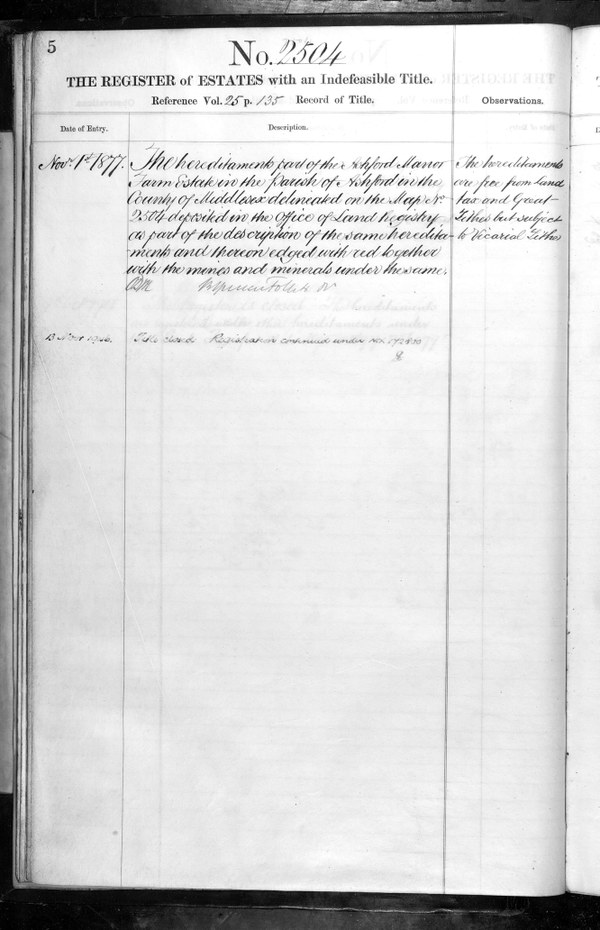 5
No. 2504
THE REGISTER of ESTATES with an Indefeasible Title.
Reference Vol. 25 p. 135 Record of Title.
Observations.
Date of Entry.
Description.
Novr 1st 1877.
The hereditaments part of the Ashford Manor
Farm Estate in the Parish of Ashford in the
County of Middlesex delineated on the Map No
2504 deposited in the Office of Land Registry
as part of the description of the same heredita-
ments and thereon edged with red together
with the mines and minerals under the same.
The hereditaments
are free from land
tax and Great
Tithes but subject
to Vicarial Tithes
13 Nov
Title closed Registration continued under No.